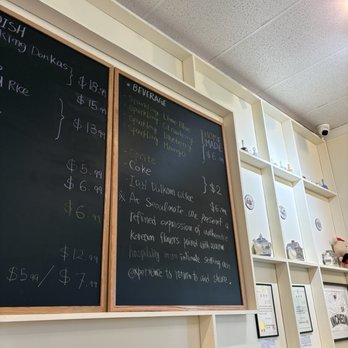 DISH
King Donkas
$18.99
$15.99
Rice
$13.99
$5.99
$6.99
$6.99
$12.99
$5.99 / $7.99
• BEVERAGE
Sparkling Lime
Sparkling Strawberry
Sparkling Blueberry
Sparkling Mango
HOME
MADE
Sprite
Coke
$2
Iced Dalkom Coffee
At Seoulmate we present a
refined expression of authentic
Korean flavors paired with warm
hospitality in an intimate setting. An
experience to return to and share.